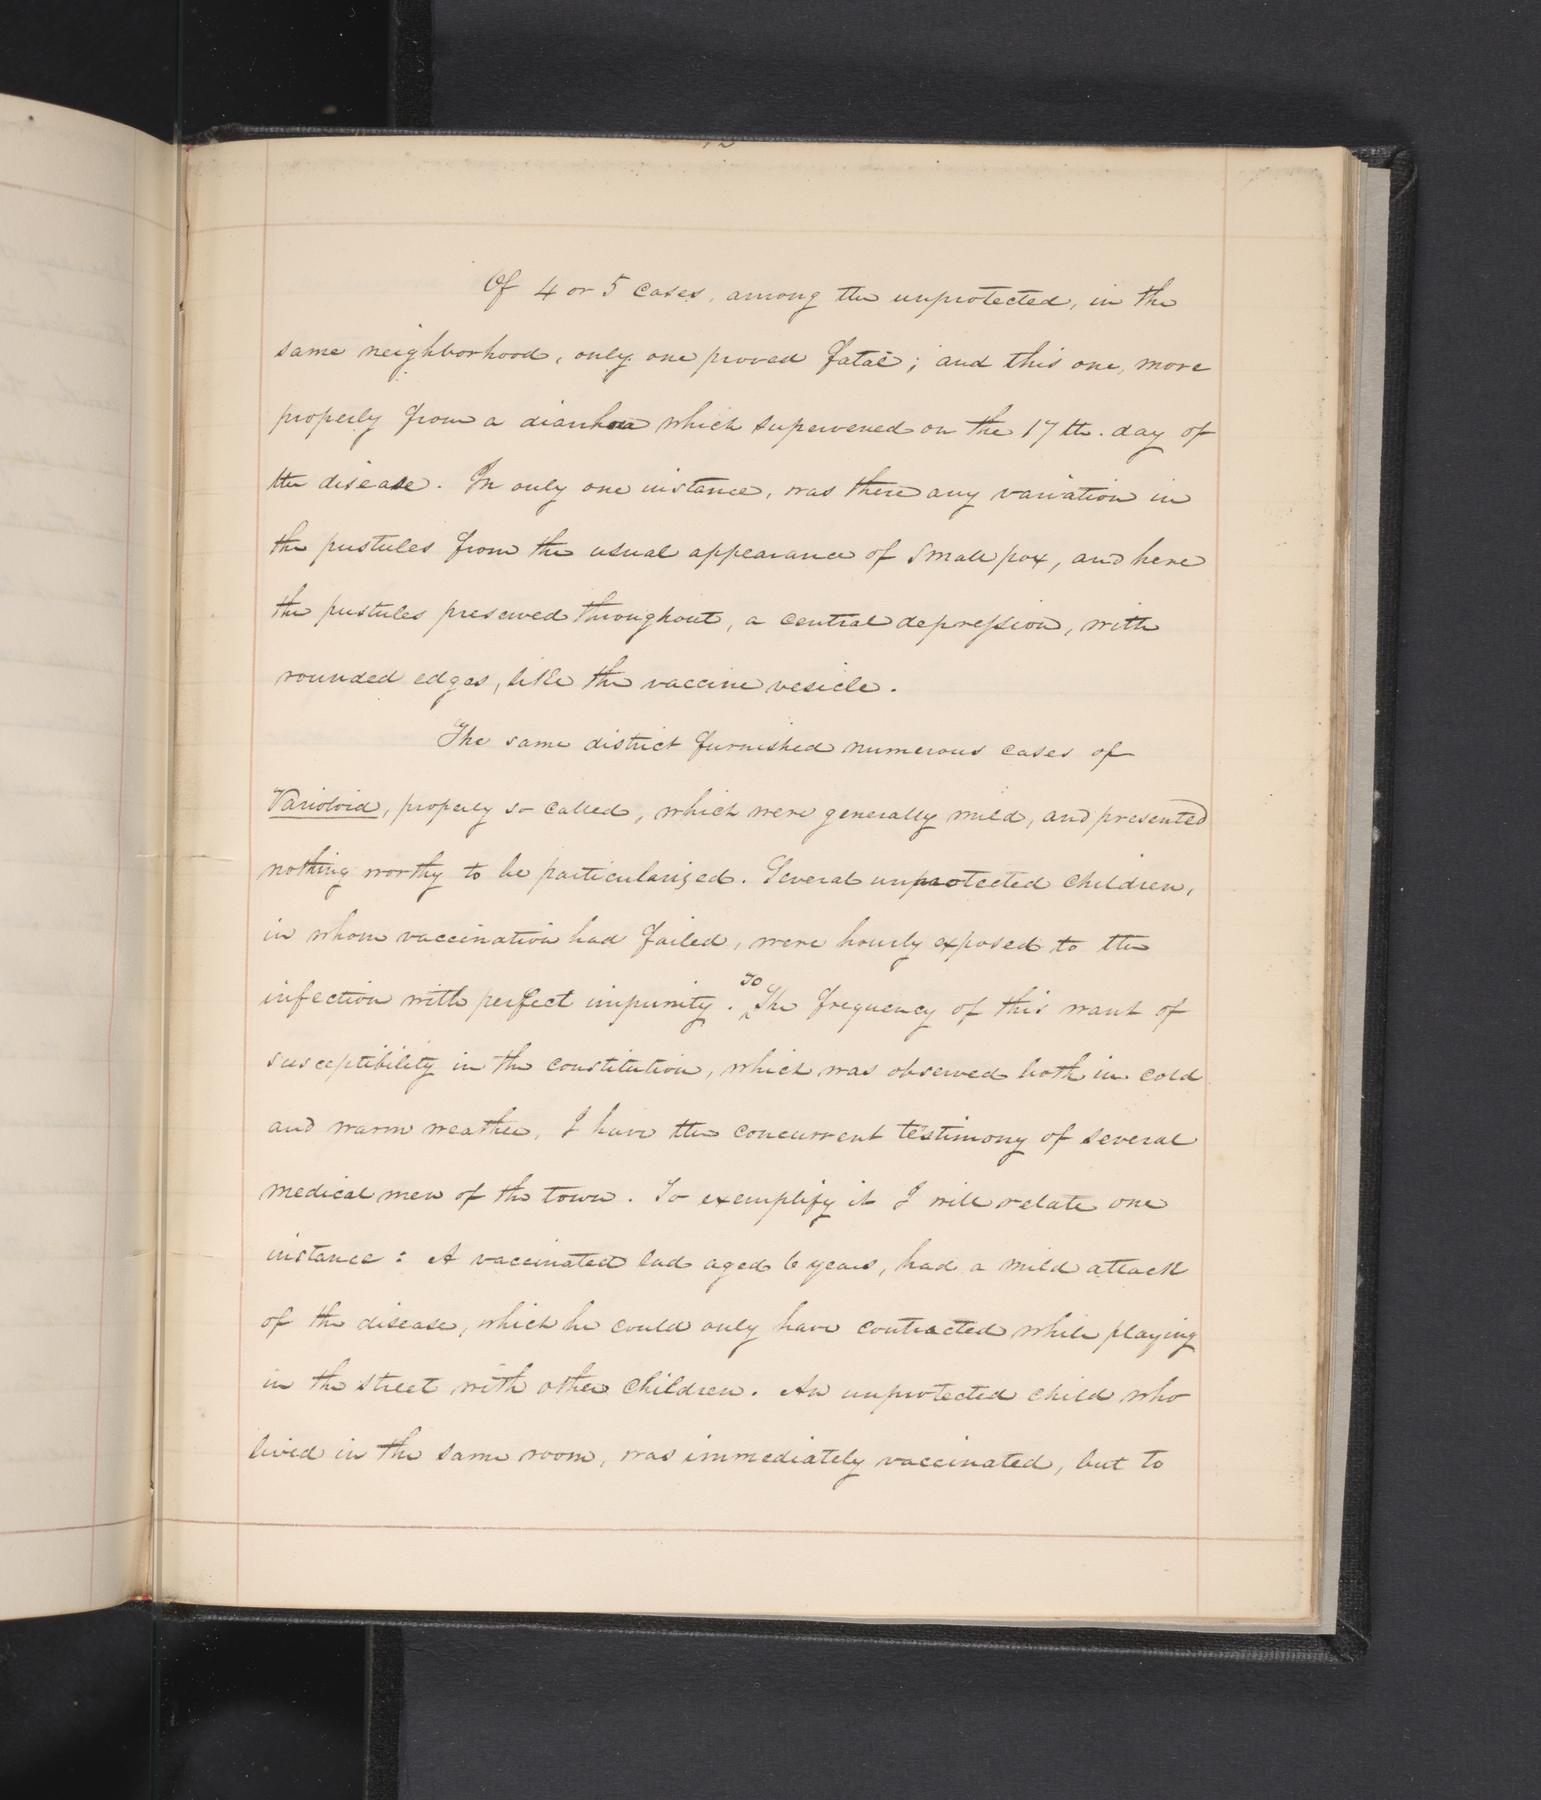 Of 4 or 5 cases, among the unprotected, in the
same neighborhood, only one proved fatal; and this one, more
properly from a diarrhoea which supervened on the 17th. day of
the disease. In only one instance, was there any variation in
the pustules from the usual appearance of small pox, and here
the pustules preserved throughout, a central depression, with
rounded edges, like the vaccine vesicle.
The same district furnished numerous cases of
Varioloid, properly so called, which were generally mild, and presented
nothing worthy to be particularized. Several unprotected children,
in whom vaccination had failed, were hourly exposed to the
To
infection with perfect impunity. ^ The frequency of this want of
susceptibility in the constitution, which was observed both in cold
and warm weather, I have the concurrent testimony of several
medical men of the town. To exemplify it I will relate one
instance: A vaccinated lad aged 6 years, had a mild attack
of the disease, which he could only have contracted while playing
in the street with other children. An unprotected child who
lived in the same room, was immediately vaccinated, but to